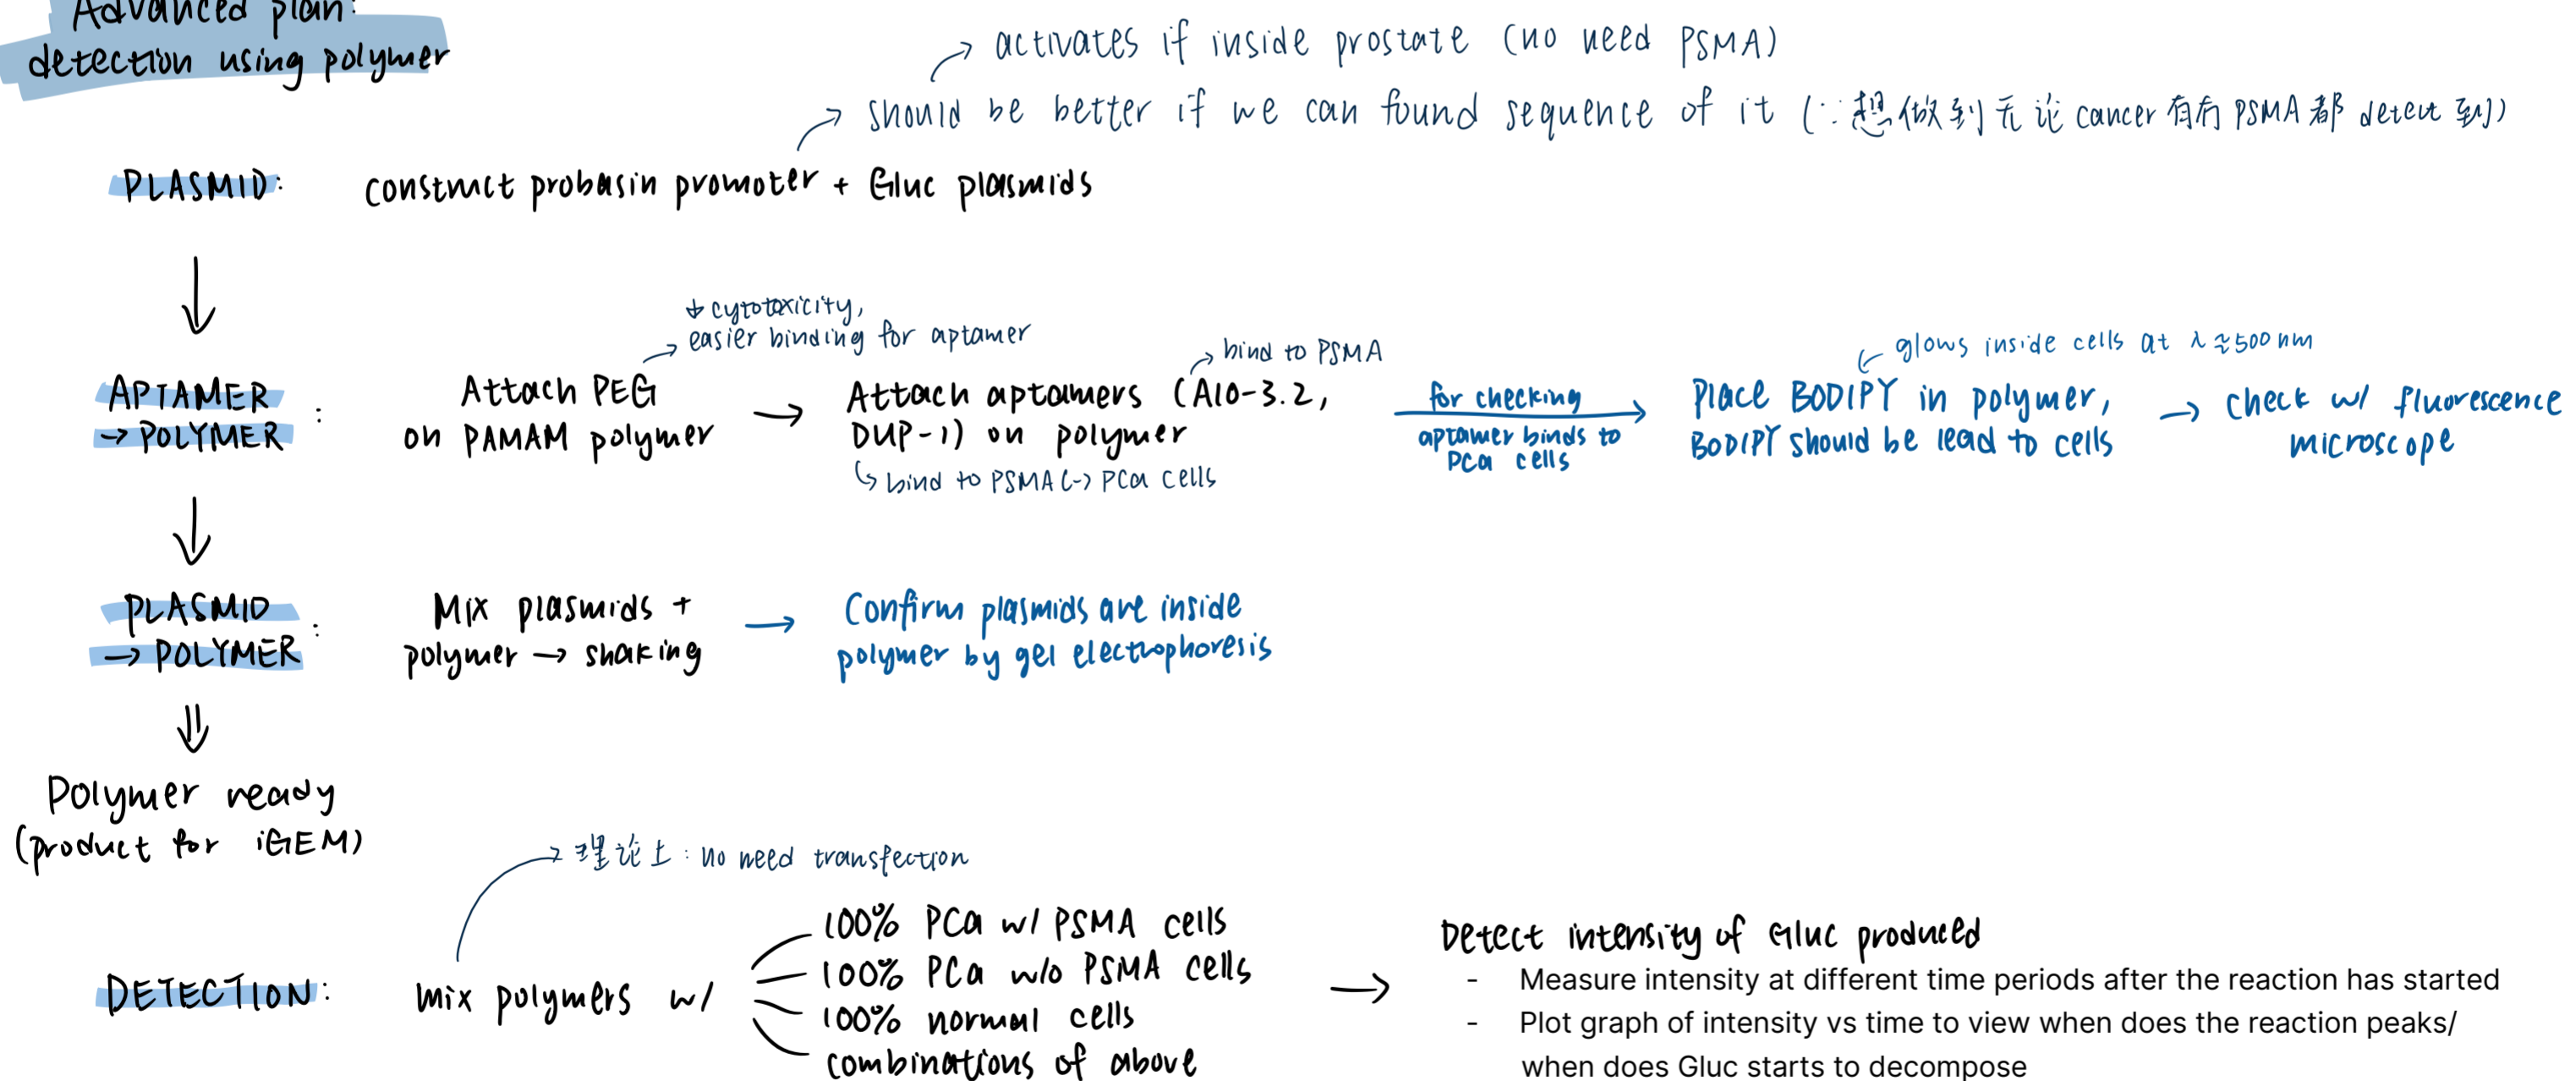 Advanced plan:
detection using polymer
activates if inside prostate (no need PSMA)
should be better if we can found sequence of it (∵想做到无论cancer有冇PSMA都detect到)
PLASMID: construct probasin promoter + Gluc plasmids
↓ cytotoxicity,
easier binding for aptamer
APTAMER
→ POLYMER :
Attach PEG
on PAMAM polymer
bind to PSMA
Attach aptamers (A10-3.2,
DUP-1) on polymer
bind to PSMA(-) PCa cells
for checking
aptamer binds to
PCa cells
glows inside cells at λ≈500nm
Place BODIPY in polymer,
BODIPY should be lead to cells
check w/ fluorescence
microscope
PLASMID
→ POLYMER :
Mix plasmids +
polymer → shaking
Confirm plasmids are inside
polymer by gel electrophoresis
Polymer ready
(product for iGEM)
理论上: no need transfection
DETECTION: mix polymers w/
100% PCa w/ PSMA cells
100% PCa w/o PSMA cells
100% normal cells
combinations of above
Detect intensity of Gluc produced
- Measure intensity at different time periods after the reaction has started
- Plot graph of intensity vs time to view when does the reaction peaks/
when does Gluc starts to decompose